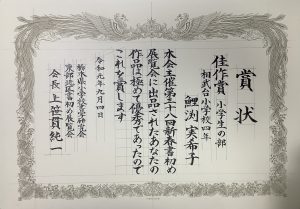 賞状
佳作賞 小学生の部
相武台小学校四年
鯉渕 実布子
本会主催第三十八回新春書初め
展覧会に出品されたあなたの
作品は極めて優秀であったので
これを賞します
令和元年九月四日
栃木県
会長 上笹貫純一